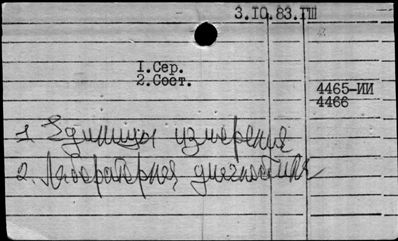 3.10.83.ГШ
1.Сер.
2.Сост.
4465-ИИ
4466
1 Единицы измерения
2. Лабораторная диагностика